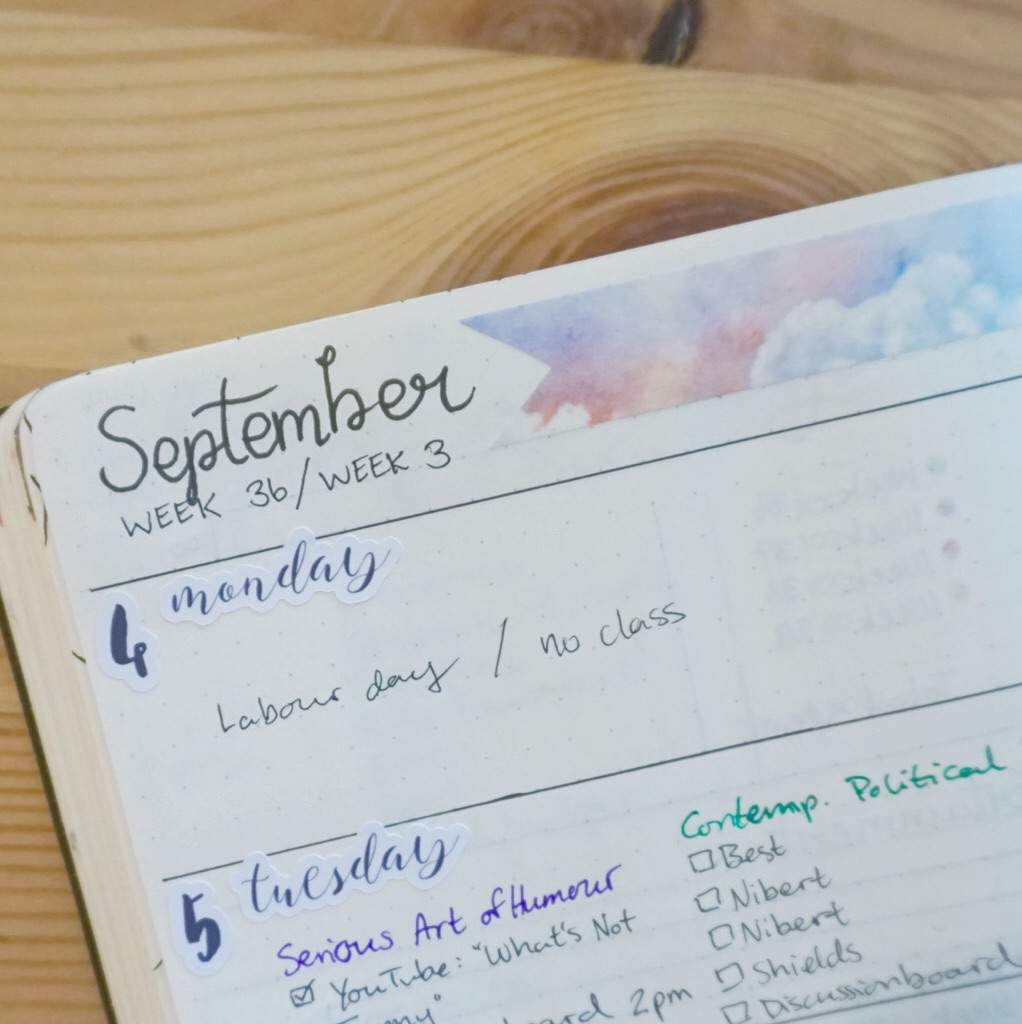 September
WEEK 36/WEEK 3
4 monday
Labour day / no class
5 tuesday
Serious Art of Humour
☑ YouTube: "What's Not
2pm
Contemp. Political
☐ Best
☐ Nibert
☐ Nibert
☐ Shields
☐ Discussionboard